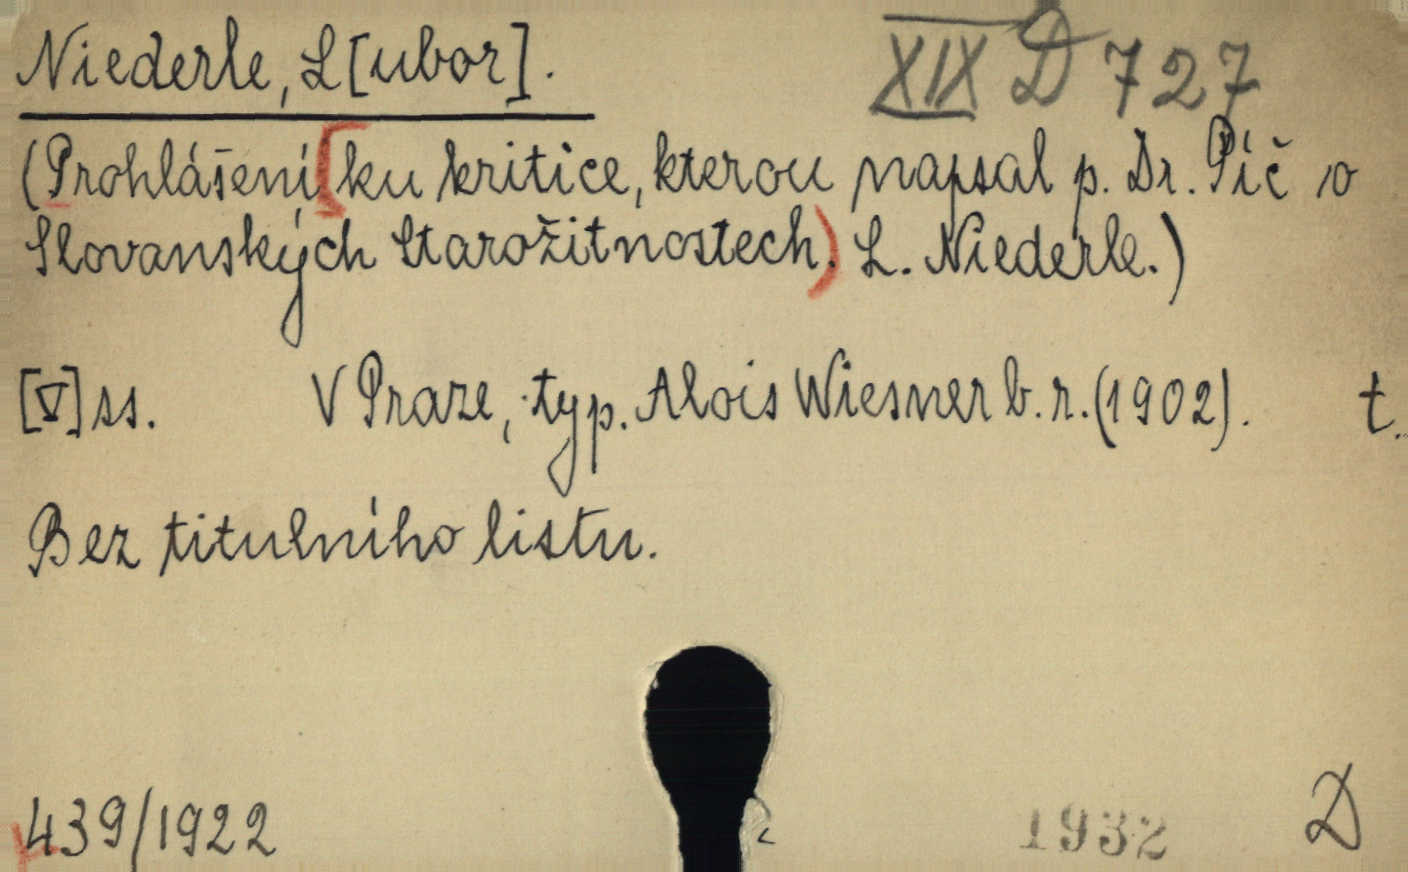 Niederle, L[ubor].
XIX D 727
(Prohlášení [ku kritice, kterou napsal p. Dr. Píč o
Slovanských Starožitnostech.) L. Niederle.)
[V] ss. V Praze, typ. Alois Wiesner b. r. (1902). t.
Bez titulního listu.
439/1922
1932
D